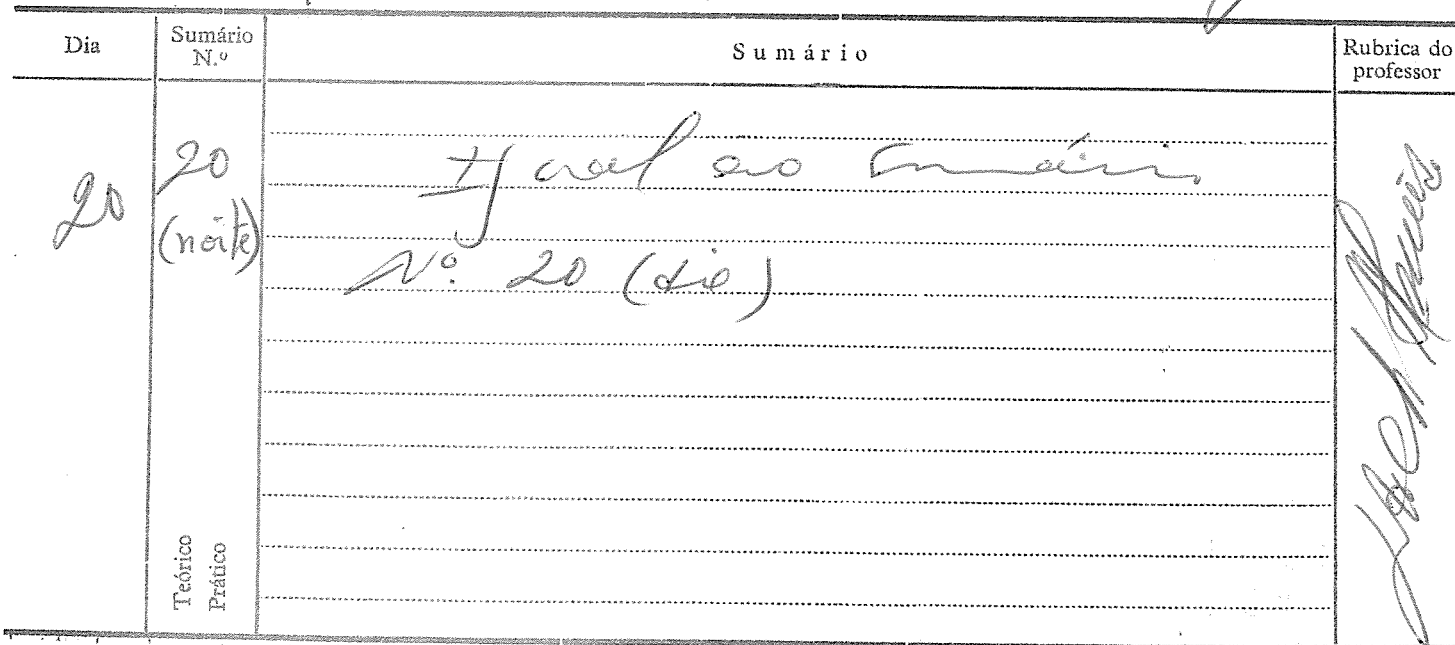 Dia
Sumário
N.º
Sumário
Rubrica do
professor
20
20
(noite)
Igual ao Sumário
Nº. 20 (dia)
Teórico
Prático